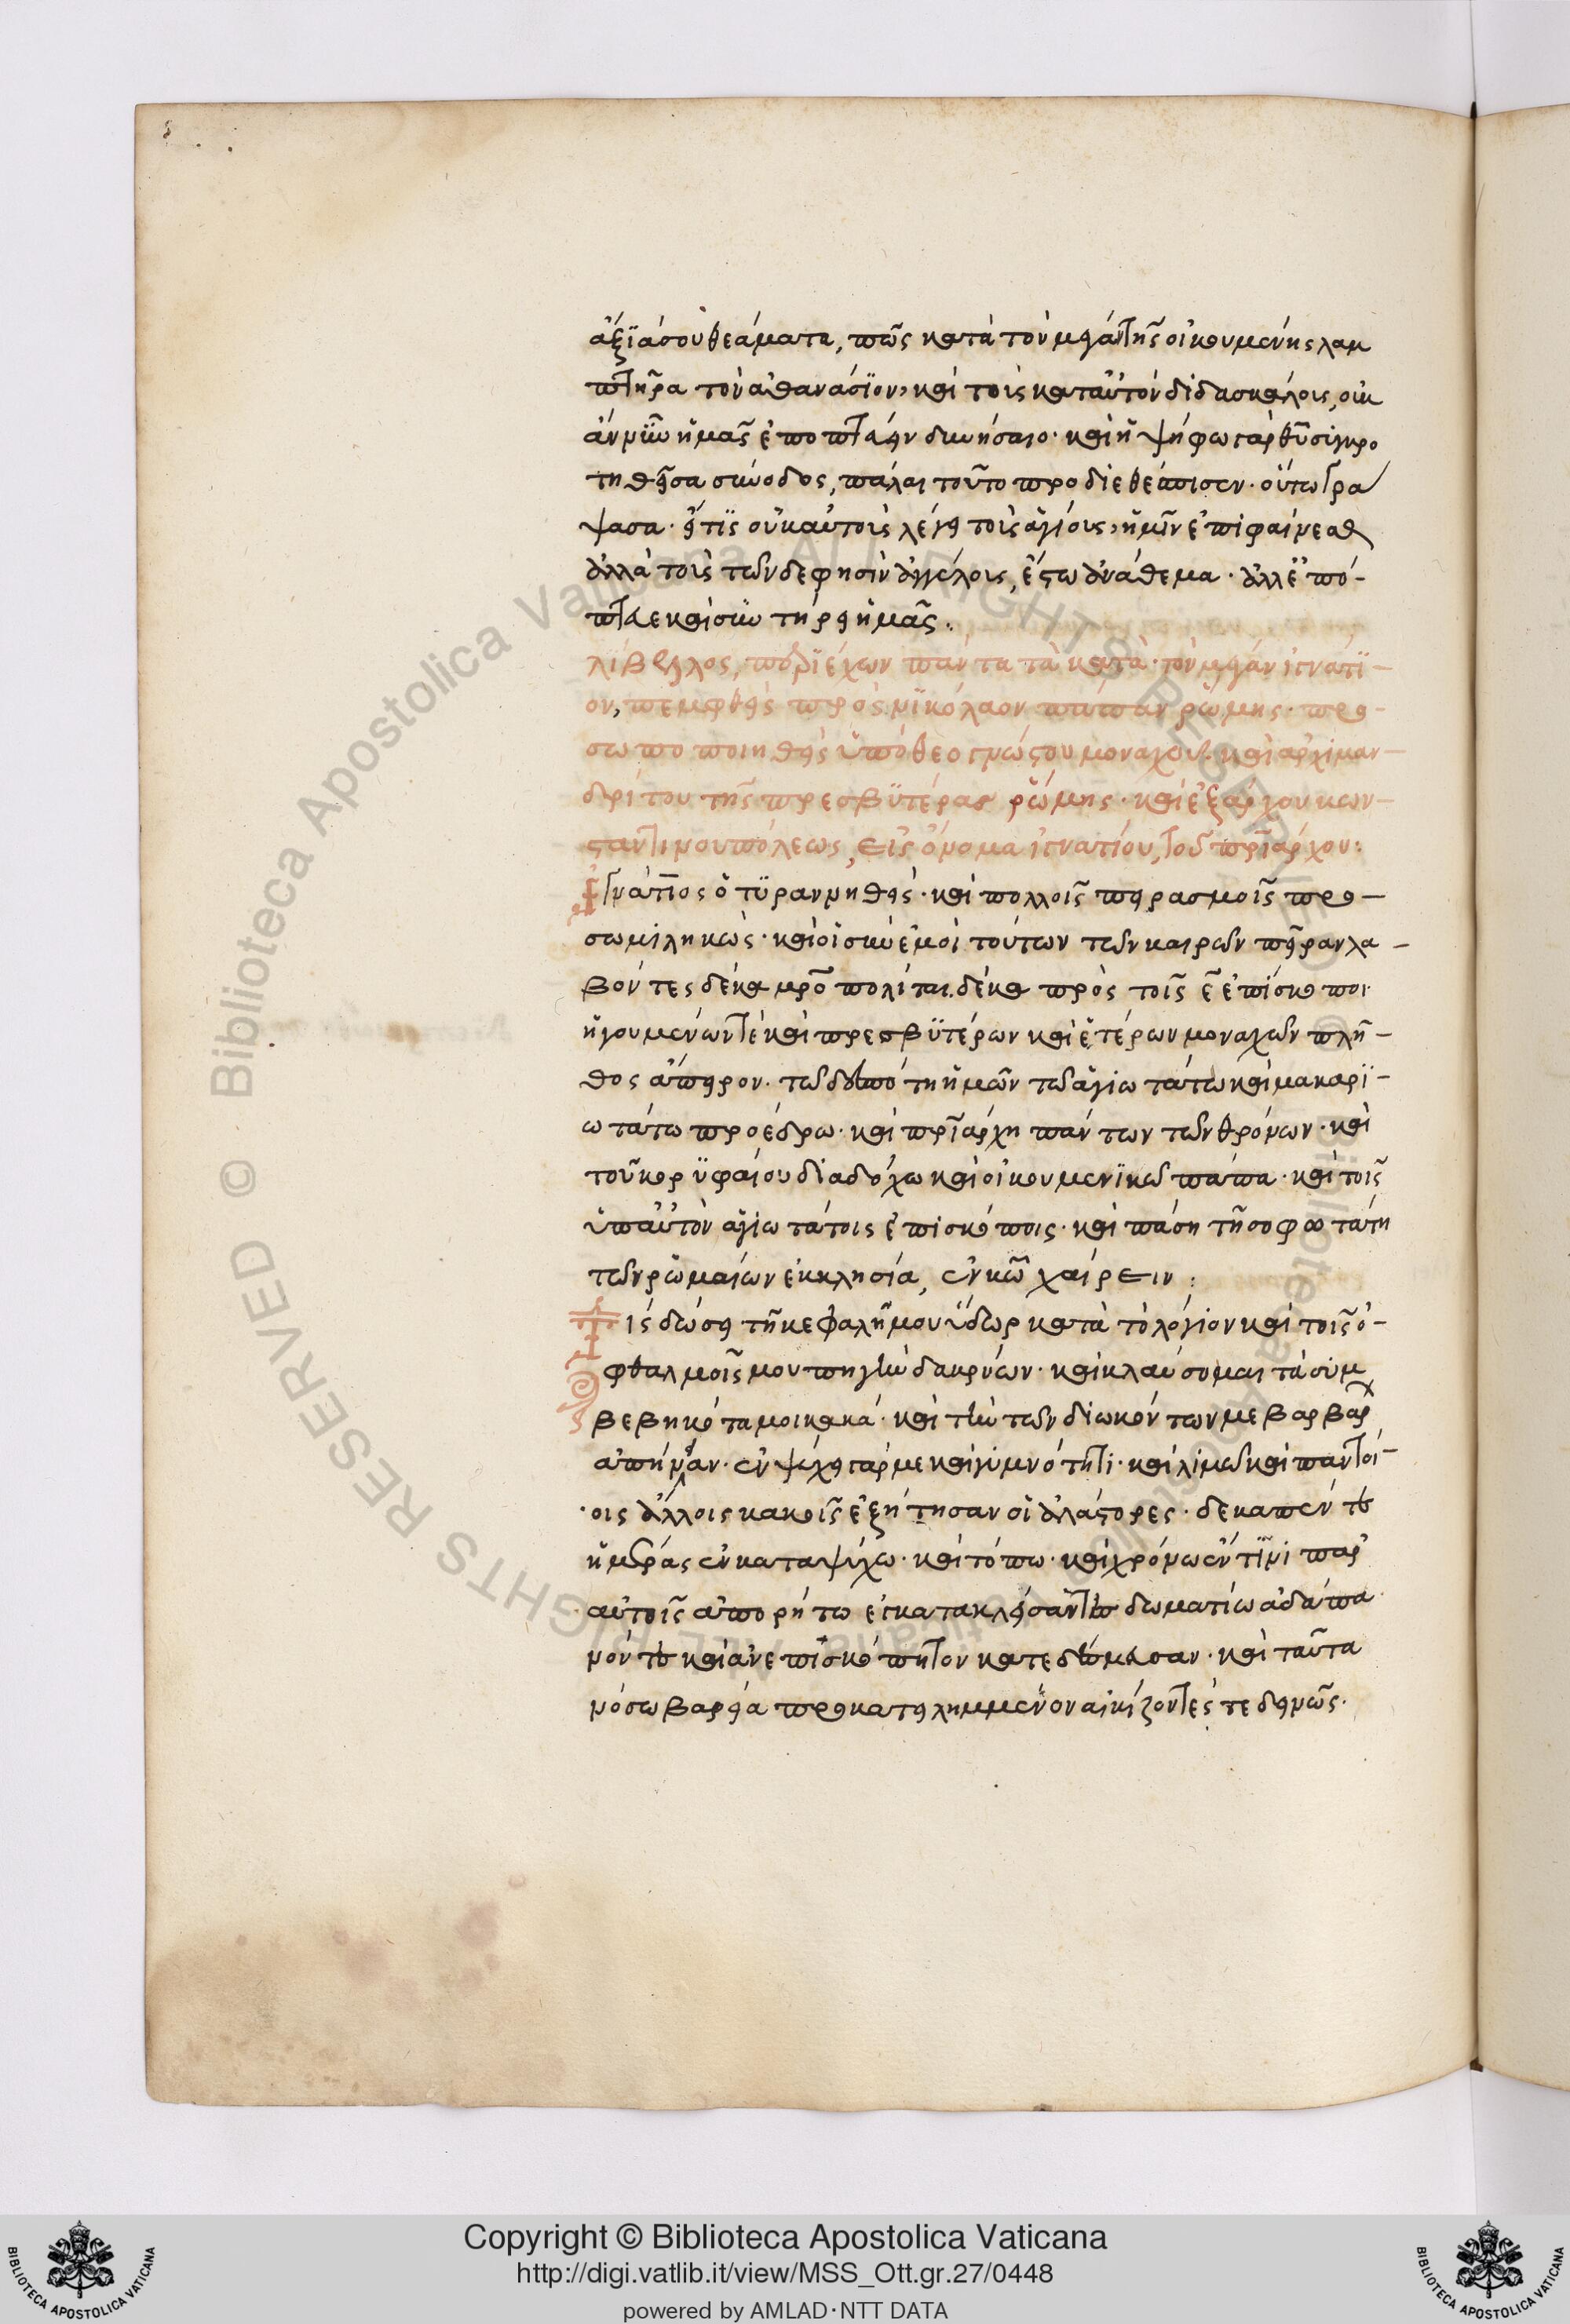 ἀξϊάσου θεάματα, πῶς κατὰ τὸν μέγαν τῆς οἰκουμένης λαμ
πτῆρα τὸν ἀθανάσϊον, καὶ τοῖς κατ αὐτὸν διδασκάλοις, οὐκ
τηθεῖσα σύνοδος, πάλαι τοῦτο προδιεθέσπισεν. οὕτω γρά
ψασα. εἴ τϊς οὐκ αὐτοῖς λέγει τοῖς ἁγίοις, ἡμῖν ἐπιφαίνεσθαι
ἀλλὰ τοῖς τῶνδε φησὶν ἀγγέλοις, ἔστω ἀνάθεμα. ἀλλ ἐπό-
πτευε καὶ συντήρει ἡμᾶς:
λίβελλος, περϊέχων πάντα τὰ κατὰ τὸν μέγαν ἰγνάτϊ-
ον, πεμφθεὶς πρὸς νϊκόλαον πάπαν ῥώμης. προ-
σωποποιηθεὶς ὑπὸ θεογνώστου μοναχοῦ. καὶ ἀρχιμαν-
δρίτου τῆς πρεσβϋτέρας ῥώμης. καὶ ἐξάρχου κων-
σταντινουπόλεως, εἰς ὄνομα ἰγνατίου, τοῦ πατριάρχου:
Ἰγνάτιος ὁ τϋραννηθεὶς. καὶ πολλοῖς πειρασμοῖς προ-
σωμιληκὼς. καὶ οἱ σὺν ἐμοὶ τούτων τῶν καιρῶν πεῖραν λα-
βόντες δέκα μητροπολίται. δέκα πρὸς τοῖς ε ἐπίσκοποι
ἡγουμένων τὲ καὶ πρεσβϋτέρων καὶ ἑτέρων μοναχῶν πλῆ-
θος ἄπειρον. τῷ δεσπότῃ ἡμῶν τῷ ἁγιωτάτω καὶ μακαρϊ-
ωτάτω προέδρω. καὶ πατριάρχη πάντων τῶν θρόνων. καὶ
τοῦ κορϋφαίου διαδόχω καὶ οἰκουμενϊκῷ πάπα. καὶ τοῖς
ὑπ αὐτὸν ἁγιωτάτοις ἐπισκόποις. καὶ πάση τῇ σοφωτάτη
τῶν ῥωμαίων ἐκκλησία, ἐν κῶ χαίρειν:
Τίς δώσει τῇ κεφαλῇ μου ὕδωρ κατὰ τὸ λόγιον καὶ τοῖς ὀ-
φθαλμοῖς μου πηγὴν δακρύων. καὶ κλαύσομαι τὰ συμ
βεβηκότα μοι κακά. καὶ τὴν τῶν διωκόντων με βάρβαρ
ἀπήνειαν. ἐν ψύχει γάρ με καὶ γυμνότητι. καὶ λιμῷ καὶ παντοί-
οις ἄλλοις κακοῖς ἐξήτησαν οἱ ἀλάστορες. δεκαπέντε
ἡμέρας ἐν καταψύχω. καὶ τόπω. καὶ χρόνω ἔν τϊνι παρ
αὐτοῖς ἀπορρήτω ἐγκατακλείσαντες δωματίω ἀδάπα
νόν τε καὶ ἀνεπισκόπητον κατεδέσμευσαν. καὶ ταῦτα
νόσω βαρεία προκατειλημμένον αἰκίζοντές τε δεινῶς.
Copyright © Biblioteca Apostolica Vaticana
http://digi.vatlib.it/view/MSS_Ott.gr.27/0448
powered by AMLAD·NTT DATA
BIBLIOTECA APOSTOLICA VATICANA
BIBLIOTECA APOSTOLICA VATICANA
Biblioteca Apostolica Vaticana ALL RIGHTS RESERVED ©
Biblioteca Apostolica Vaticana ALL RIGHTS RESERVED ©